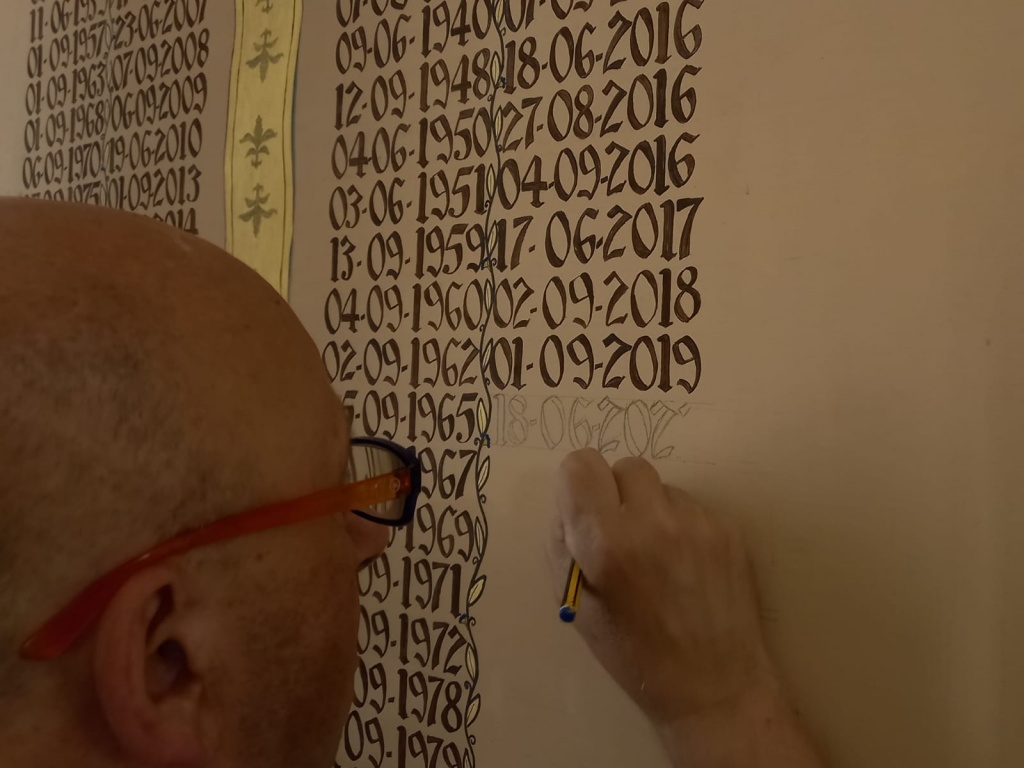 11-06-195
23-06-2007
01-09-1957
07-09-2008
01-09-1963
06-09-2009
01-09-1968
19-06-2010
06-09-1970
01-09-2013
1975
09-06-1940
18-06-2016
12-09-1948
27-08-2016
04-06-1950
04-09-2016
03-06-1951
17-06-2017
13-09-1959
02-09-2018
04-09-1960
01-09-2019
02-09-1962
18-06-202
-09-1965
1967
1969
09-1971
09-1972
09-1978
09-1979